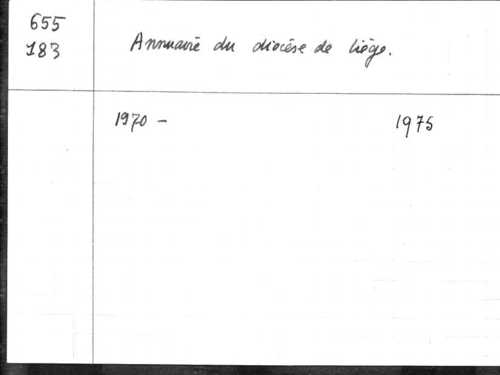 655
183
Annuaire du diocèse de Liège.
1970 - 1975